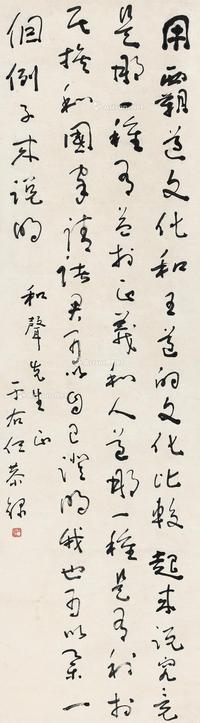 用霸道文化和王道的文化比較起來說究竟
是那一種有益於正義和人道那一種是有利於
民族和國家請諸君可以自己證明我也可以舉一
個例子來說明
和聲先生正
于右任恭錄